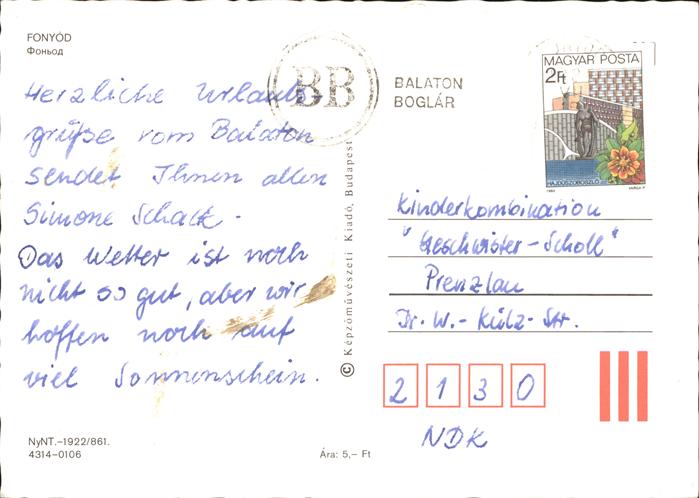 FONYÓD
Фоньод
Herzliche Urlaubs
grüße vom Balaton
sendet Ihnen allen
Simone Schack.
Das Wetter ist noch
nicht so gut, aber wir
hoffen noch auf
viel Sonnenschein.
NyNT.–1922/861.
4314–0106
Ára: 5,– Ft
© Képzőművészeti Kiadó, Budapest
BB
BALATON
BOGLÁR
MAGYAR POSTA
2Ft
HAJDÚSZOBOSZLÓ
Kinderkombination
"Geschwister-Scholl"
Prenzlau
Dr.-W.-Külz-Str.
2130
NDK